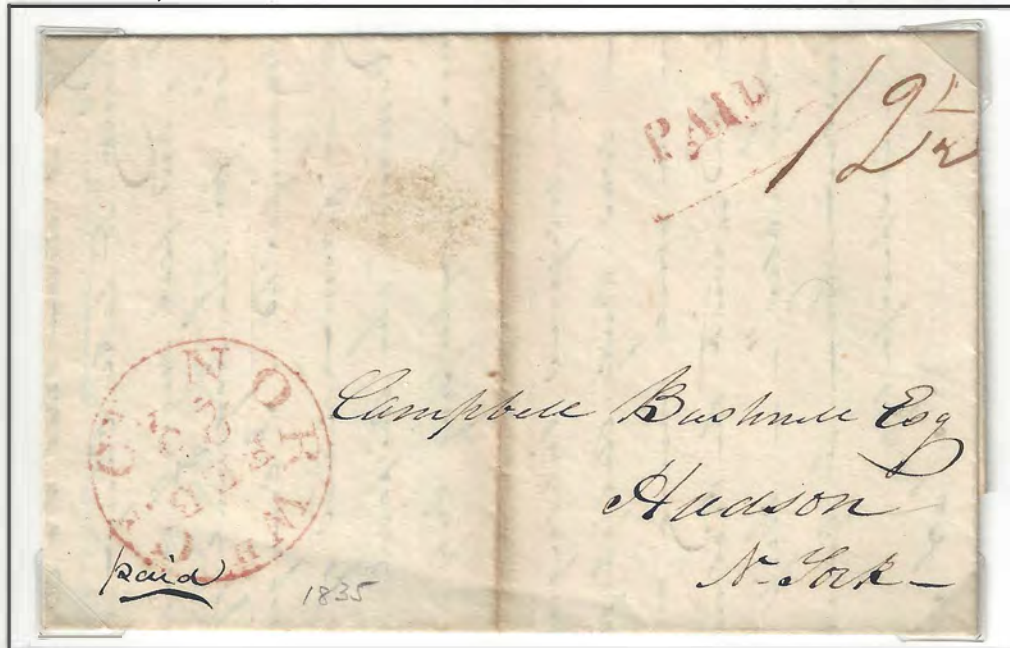 PAID
12½
NORW
Campbell Bushnell Esq
Hudson
N- York -
paid
1835